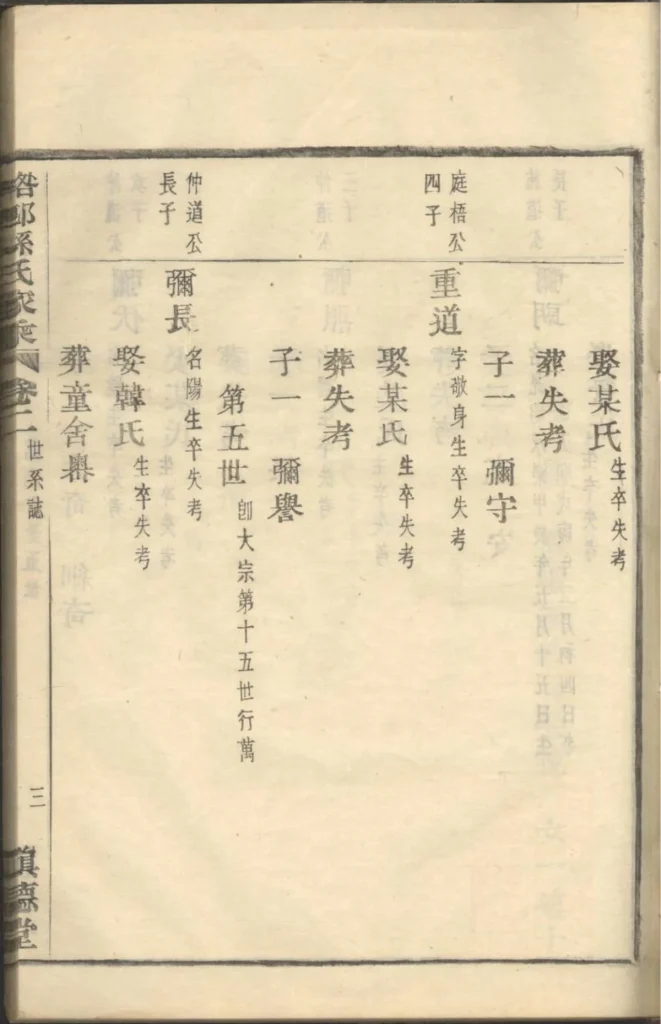 娶某氏生卒失考
葬失考
子一 彌守
庭梧公四子
重道字敬身生卒失考
娶某氏生卒失考
葬失考
子一 彌譽
第五世即大宗第十五世行萬
仲道公長子
彌長名陽生卒失考
娶韓氏生卒失考
葬童舍㠘
孫氏家乘 卷二 世系誌 三 慎德堂